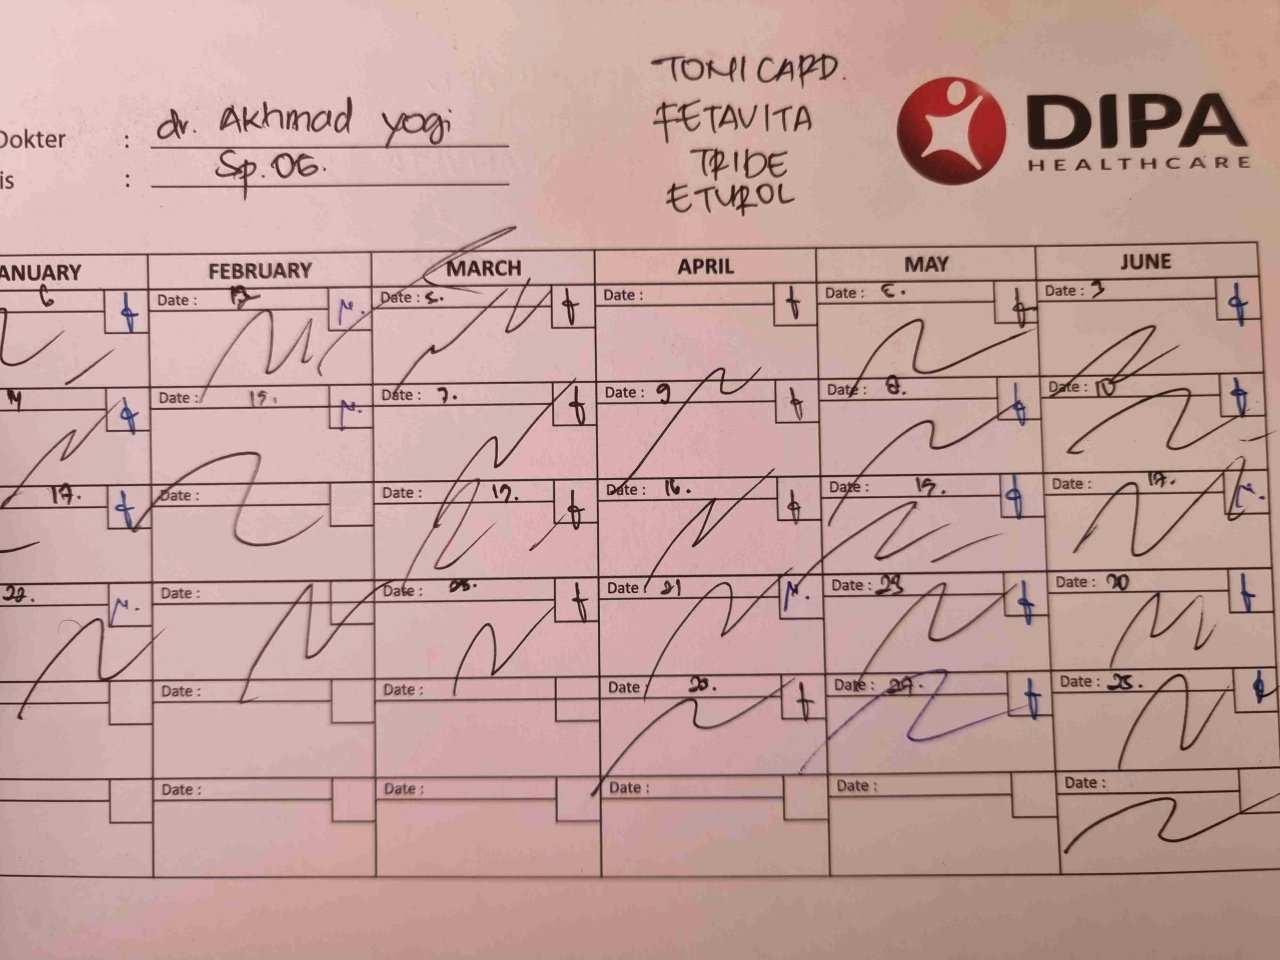 Dokter : dr. Akhmad yogi
is : Sp.OG.
TOMICARD.
FETAVITA
TRIDE
ETUROL
DIPA
HEALTHCARE
ANUARY FEBRUARY MARCH APRIL MAY JUNE
6 Date : Date : 5. Date : Date : Date : 3
Date : 15. Date : 7. Date : 9 Date : 8. Date : 10
17. Date : Date : Date : 16. Date : 19. Date : 17.
22. Date : Date : Date : 21 Date : 23 Date : 20
Date : Date : Date Date : 27. Date : 25.
Date : Date : Date : Date : Date :